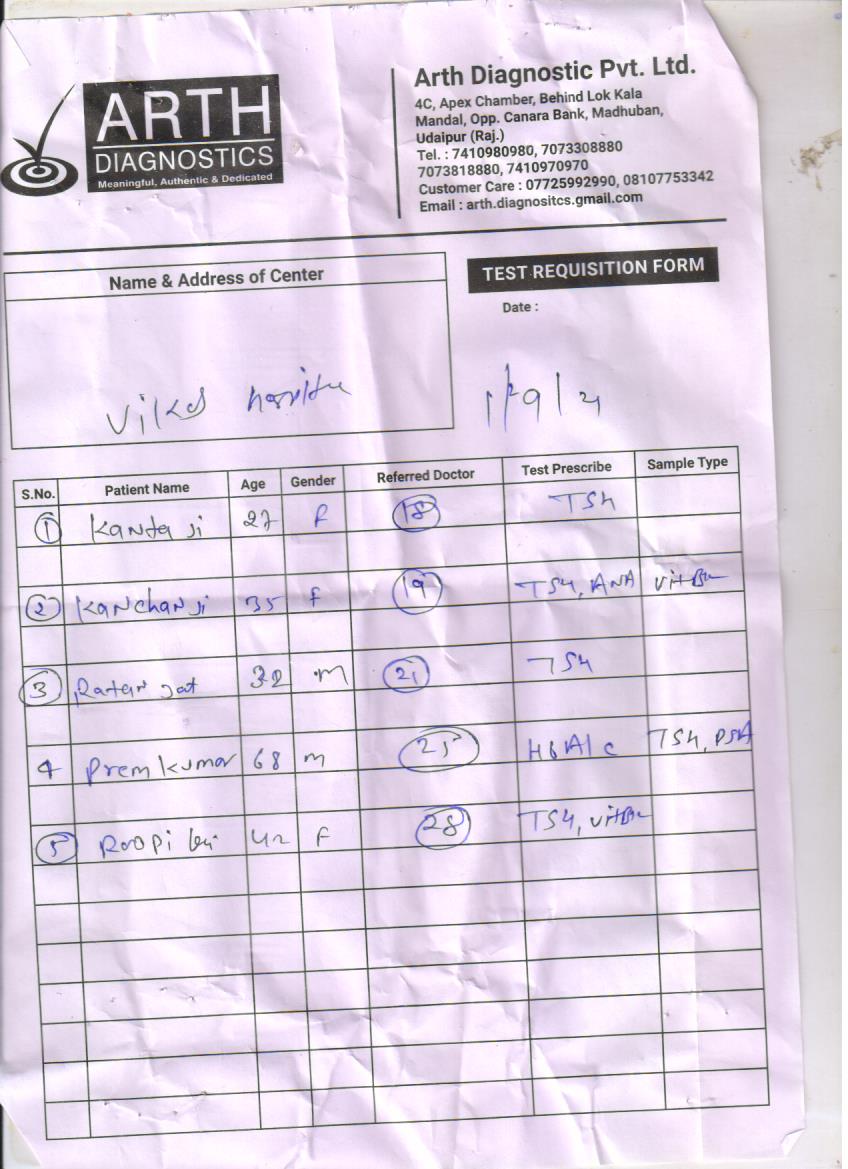 ARTH
DIAGNOSTICS
Meaningful, Authentic & Dedicated
Arth Diagnostic Pvt. Ltd.
4C, Apex Chamber, Behind Lok Kala
Mandal, Opp. Canara Bank, Madhuban,
Udaipur (Raj.)
Tel. : 7410980980, 7073308880
7073818880, 7410970970
Customer Care : 07725992990, 08107753342
Email : arth.diagnositcs.gmail.com
Name & Address of Center
TEST REQUISITION FORM
Date :
S.No. Patient Name Age Gender Referred Doctor Test Prescribe Sample Type
1 Kanta ji 27 F 18 TSH
2 Kanchan ji 35 F 19 TSH, ANA VitB12
3 Ratan Jat 32 M 21 TSH
4 Prem Kumar 68 M HbA1c TSH, PSA
5 Roopi 42 F 28 TSH, VitB12